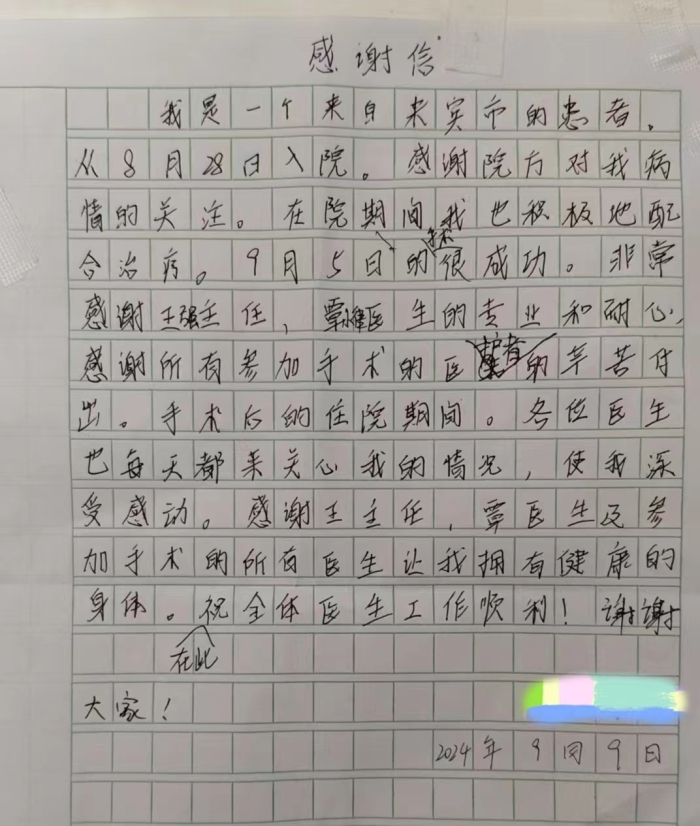 感谢信
我是一个来自来宾市的患者，
从8月28日入院。感谢院方对我病
情的关注。在院期间我也积极地配
合治疗。9月5日的手术很成功。非常
感谢王强主任，覃医生的专业和耐心，
感谢所有参加手术的医护者的辛苦付
出。手术后的住院期间。各位医生
也每天都来关心我的情况，使我深
受感动。感谢王主任，覃医生及参
加手术的所有医生让我拥有健康的
身体。在此祝全体医生工作顺利！谢谢
大家！
2024年9月9日